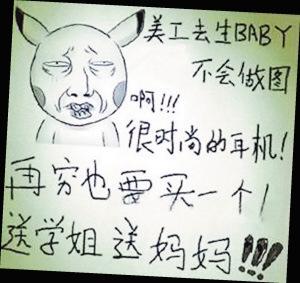 美工去生BABY
不会做图
啊!!!
很时尚的耳机!
再穷也要买一个!
送学姐送妈妈!!!